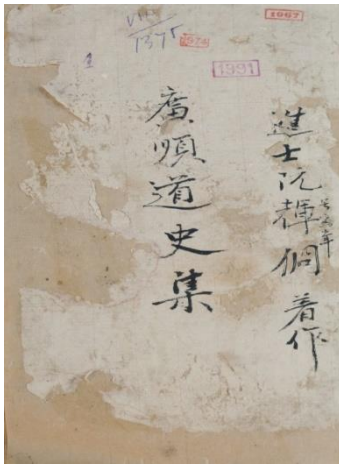 VHv
1375
1
1991
進士阮輝侰著作
廣順道史集